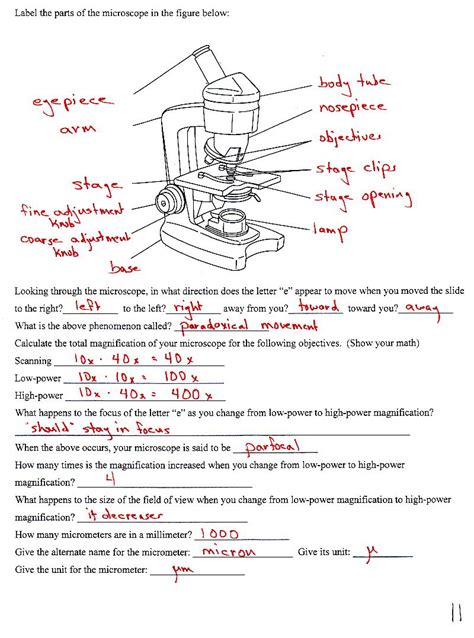 Label the parts of the microscope in the figure below:
body tube
eyepiece
nosepiece
arm
objectives
stage clips
stage
stage opening
fine adjustment
knob
lamp
coarse adjustment
knob
base
Looking through the microscope, in what direction does the letter "e" appear to move when you moved the slide
to the right? left to the left? right away from you? toward toward you? away
What is the above phenomenon called? paradoxical movement
Calculate the total magnification of your microscope for the following objectives. (Show your math)
Scanning 10x · 40x = 40x
Low-power 10x · 10x = 100x
High-power 10x · 40x = 400x
What happens to the focus of the letter "e" as you change from low-power to high-power magnification?
"should" stay in focus
When the above occurs, your microscope is said to be parfocal
How many times is the magnification increased when you change from low-power to high-power
magnification? 4
What happens to the size of the field of view when you change from low-power magnification to high-power
magnification? it decreases
How many micrometers are in a millimeter? 1000
Give the alternate name for the micrometer: micron Give its unit: μ
Give the unit for the micrometer: μm
11